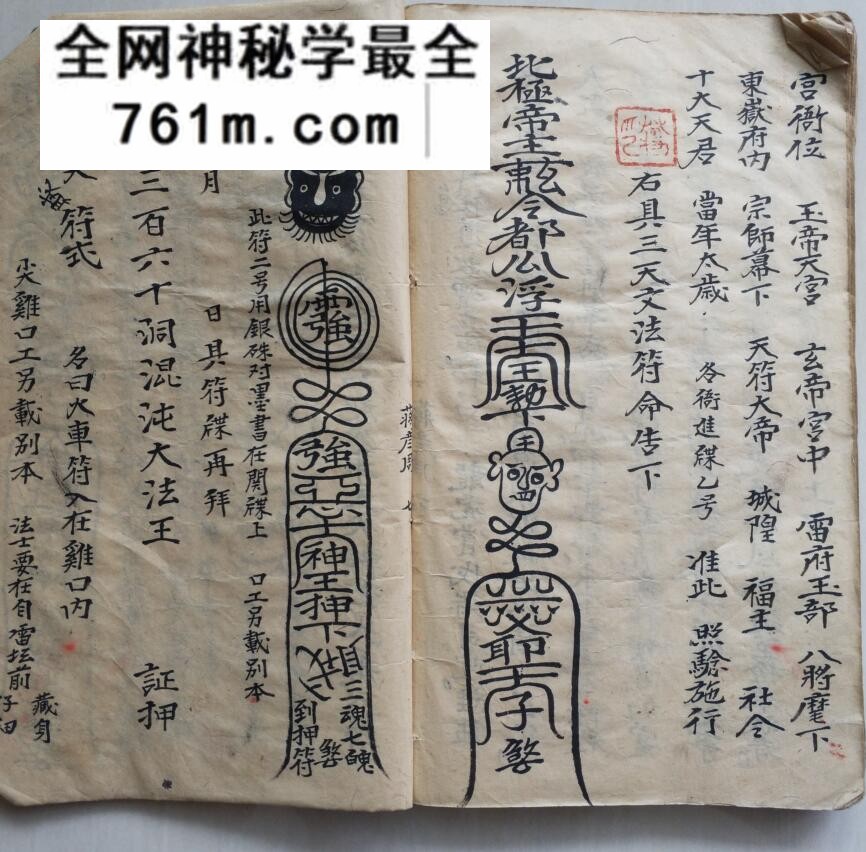 全网神秘学最全
761m.com
宫衙位 玉帝天宫 玄帝宫中 雷府玉部 八將麾下
東嶽府内 宗師幕下 天符大帝 城隍 福主 社令
十大天君 當年太歲 各衙進牒乙号 准此 照驗施行
右具三天文法符命告下
北極帝主
令都公浮
此符二号用銀硃对墨書在関牒上 口工另載別本
強
神王押下
三魂七魄
到押符
月 日具符牒再拜
三百六十洞混沌大法王 証押
符式 名曰火車符入在雞口内
尖雞口工另載別本 法士要在自雷坛前 藏身